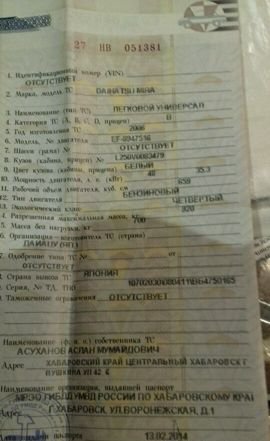 27 НВ 051381
1. Идентификационный номер (VIN)
ОТСУТСТВУЕТ
2. Марка, модель ТС DAIHATSU MIRA
3. Наименование (тип ТС) ЛЕГКОВОЙ УНИВЕРСАЛ
4. Категория ТС (A, B, C, D, прицеп) B
5. Год изготовления ТС 2006
6. Модель, № двигателя EF-8947516
7. Шасси (рама) № ОТСУТСТВУЕТ
8. Кузов (кабина, прицеп) № L250V0083479
9. Цвет кузова (кабины, прицепа) БЕЛЫЙ
10. Мощность двигателя, л. с. (кВт) 48 35.3
11. Рабочий объем двигателя, куб. см 659
12. Тип двигателя БЕНЗИНОВЫЙ
13. Экологический класс ЧЕТВЕРТЫЙ
14. Разрешенная максимальная масса, кг 920
15. Масса без нагрузки, кг 700
16. Организация - изготовитель ТС (страна)
ДАЙХАТСУ (ЯПОНИЯ)
17. Одобрение типа ТС № от
ОТСУТСТВУЕТ
18. Страна вывоза ТС ЯПОНИЯ
Серия, № ТД, ТПО
Таможенные ограничения ОТСУТСТВУЕТ
Наименование (ф. и. о.) собственника ТС
АСУХАНОВ АСЛАН МУМАЙДОВИЧ
Адрес ХАБАРОВСКИЙ КРАЙ ЦЕНТРАЛЬНЫЙ ХАБАРОВСК Г
ПУШКИНА УЛ
Наименование организации, выдавшей паспорт
МРЭО ГИБДД УМВД РОССИИ ПО ХАБАРОВСКОМУ КРАЮ
Адрес Г.ХАБАРОВСК, УЛ.ВОРОНЕЖСКАЯ, Д.1
Дата выдачи паспорта 13.02.2014